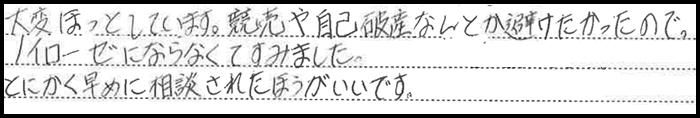 大変ほっとしています。競売や自己破産なんとか避けたかったので。
ノイローゼにならなくてすみました。
とにかく早めに相談されたほうがいいです。